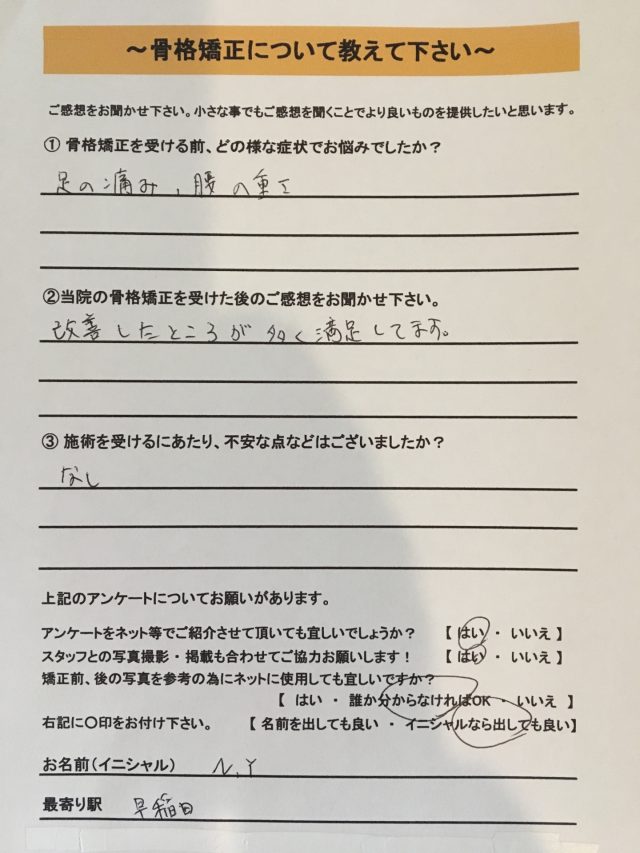 ～骨格矯正について教えて下さい～
ご感想をお聞かせ下さい。小さな事でもご感想を聞くことでより良いものを提供したいと思います。
① 骨格矯正を受ける前、どの様な症状でお悩みでしたか？
足の痛み、腰の重さ
②当院の骨格矯正を受けた後のご感想をお聞かせ下さい。
改善したところが多く満足してます。
③ 施術を受けるにあたり、不安な点などはございましたか？
なし
上記のアンケートについてお願いがあります。
アンケートをネット等でご紹介させて頂いても宜しいでしょうか？ 【 はい ・ いいえ 】
スタッフとの写真撮影・掲載も合わせてご協力お願いします！ 【 はい ・ いいえ 】
矯正前、後の写真を参考の為にネットに使用しても宜しいですか？
【 はい ・ 誰か分からなければOK ・ いいえ 】
右記に〇印をお付け下さい。 【 名前を出しても良い ・ イニシャルなら出しても良い】
お名前（イニシャル） N.Y
最寄り駅 早稲田